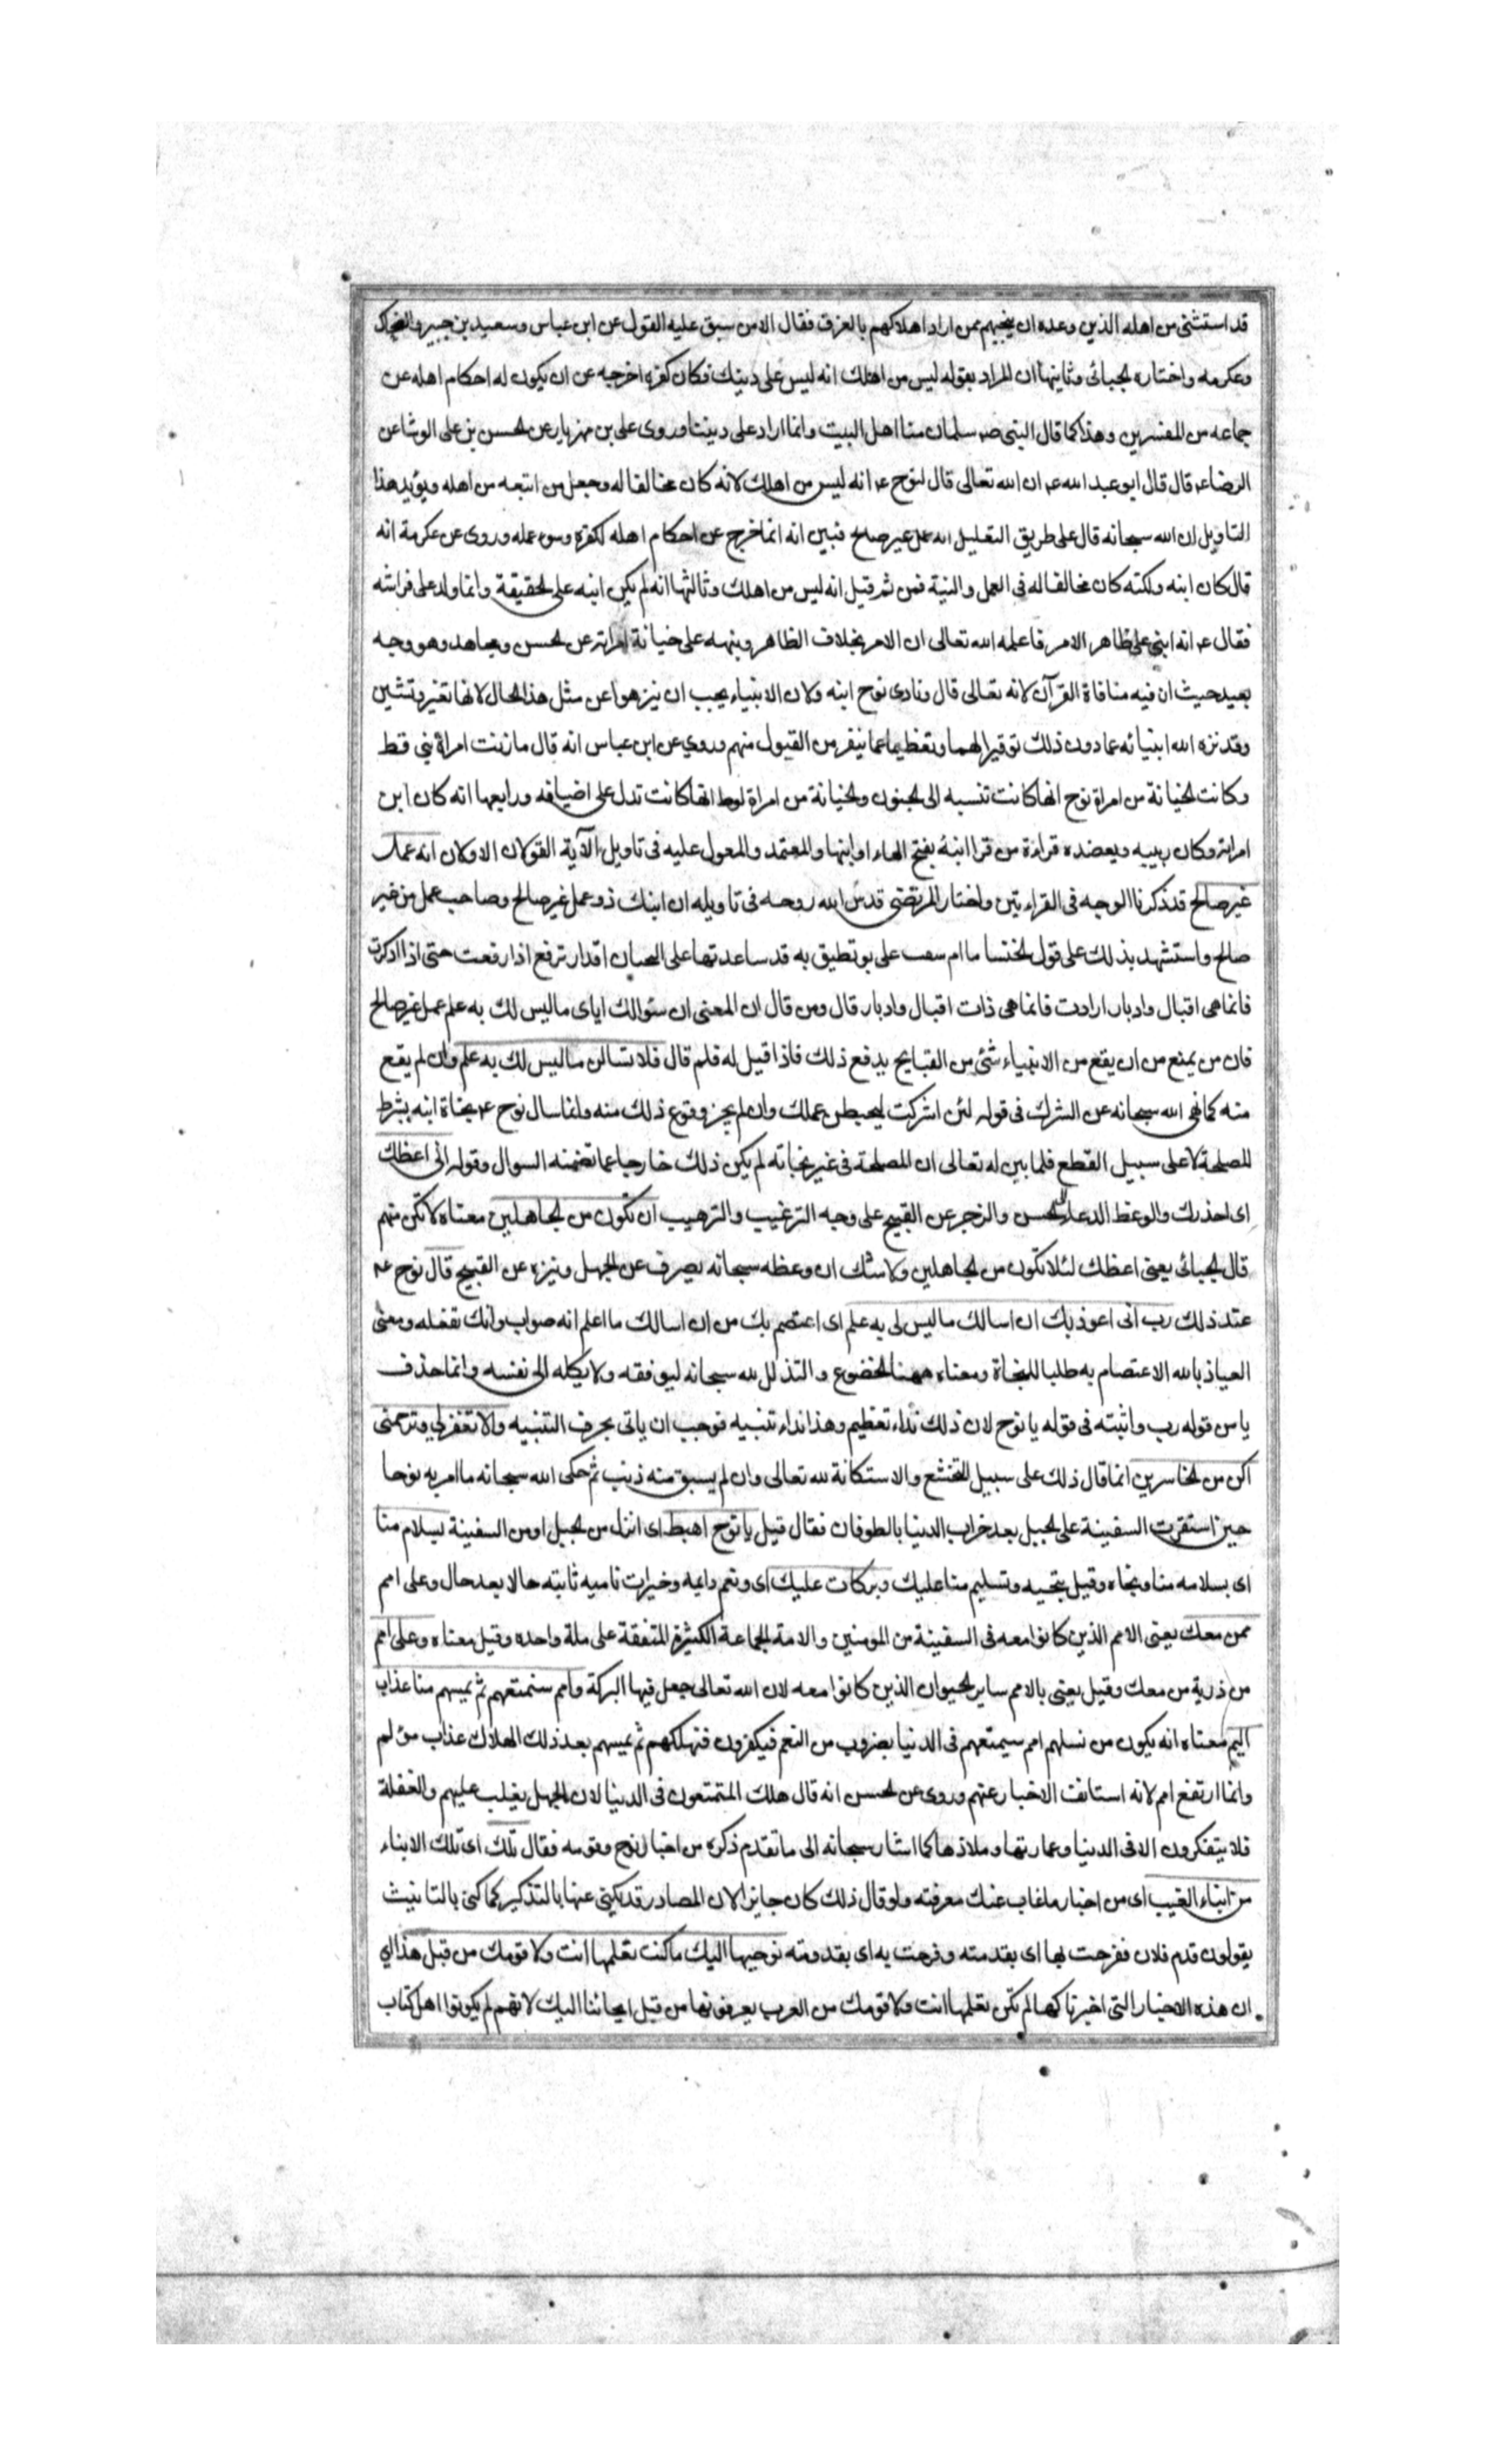 قد استثنى من اهله الذين وعده ان ينجيهم ممن اراد اهلاكهم بالغرق فقال الا من سبق عليه القول عن ابن عباس وسعيد بن جبير والضحاك
وعكرمه واختاره الجبائى وثانيها ان المراد بقوله ليس من اهلك انه ليس على دينك فكان كفره اخرجه عن ان يكون له احكام اهله عن
جماعه من المفسرين وهذا كما قال النبى صم سلمان منا اهل البيت وانما اراد على ديننا وروى على بن مهزيار عن الحسن بن على الوشا عن
الرضا عم قال قال ابو عبد الله عم ان الله تعالى قال لنوح عم انه ليس من اهلك لانه كان مخالفا له وجعل من اتبعه من اهله ويؤيد هذا
التاويل ان الله سبحانه قال على طريق التعليل انه عمل غير صالح فبين انه انما خرج عن احكام اهله لكفره وسوء عمله وروى عن عكرمة انه
قال كان ابنه ولكنه كان مخالفا له فى العمل والنية فمن ثم قيل انه ليس من اهلك وثالثها انه لم يكن ابنه على الحقيقة وانما ولد على فراشه
فقال عم انه ابنى على ظاهر الامر فاعلمه الله تعالى ان الامر بخلاف الظاهر ونبهه على خيانة امراته عن الحسن ومجاهد وهو وجه
بعيد حيث ان فيه منافاة القرآن لانه تعالى قال ونادى نوح ابنه ولان الانبياء يجب ان ينزهوا عن مثل هذا الحال لانها تعير وتشين
وقد نزه الله انبيائه عما دون ذلك توقيرا لهم وتعظيما عما ينفر من القبول منهم وروي عن ابن عباس انه قال ما زنت امراة نبى قط
وكانت الخيانة من امراة نوح انها كانت تنسبه الى الجنون والخيانة من امراة لوط انها كانت تدل على اضيافه ورابعها انه كان ابن
امراته وكان ربيبه ويعضده قراءة من قرا ابنهَ بفتح الهاء او ابنها والمعتمد والمعول عليه فى تاويل الآية القولان الاولان انه عمل
غير صالح قد ذكرنا الوجه فى القراءتين واختار المرتضى قدس الله روحه فى تاويله ان ابنك ذو عمل غير صالح وصاحب عمل من غير
صالح واستشهد بذلك على قول الخنسا ما ام سقب على بو تطيق به قد ساعدتها على اقدار ترفع اذا رفعت حتى اذا ادكرت
فانما هى اقبال وادبار ارادت فانما هى ذات اقبال وادبار قال ومن قال ان المعنى ان سؤالك اياى ما ليس لك به علم عمل غير صالح
فان من يمنع من ان يقع من الانبياء شئ من القبايح يدفع ذلك فاذا قيل له فلم قال فلا تسالن ما ليس لك به علم وان لم يقع
منه كما نهى الله سبحانه عن الشرك فى قوله لئن اشركت ليحبطن عملك وان لم يجز وقوع ذلك منه وانما سال نوح عم نجاة ابنه بشرط
المصلحة لا على سبيل القطع فلما بين له تعالى ان المصلحة فى غير نجاته لم يكن ذلك خارجا عما تضمنه السوال وقوله انى اعظك
اى احذرك والوعظ الدعاء الى الحسن والزجر عن القبيح على وجه الترغيب والترهيب ان تكون من الجاهلين معناه لا تكن منهم
قال الجبائى يعنى اعظك لئلا تكون من الجاهلين ولا شك ان وعظه سبحانه يصرف عن الجهل وينزه عن القبيح قال نوح عم
عند ذلك رب انى اعوذ بك ان اسالك ما ليس لى به علم اى اعتصم بك من ان اسالك ما اعلم انه صواب وانك تفعله ومعنى
العياذ بالله الاعتصام به طلبا للنجاة ومعناه ههنا الخضوع والتذلل لله سبحانه ليوفقه ولا يكله الى نفسه وانما حذف
يا من قوله رب واثبته فى قوله يا نوح لان ذلك نداء تعظيم وهذا نداء تنبيه فوجب ان ياتى بحرف التنبيه والا تغفر لى وترحمنى
اكن من الخاسرين انما قال ذلك على سبيل التخشع والاستكانة لله تعالى وان لم يسبق منه ذنب ثم حكى الله سبحانه ما امر به نوحا
حين استقرت السفينة على الجبل بعد خراب الدنيا بالطوفان فقال قيل يا نوح اهبط اى انزل من الجبل او من السفينة بسلام منا
اى بسلامه منا ونجاه وقيل بتحيه وتسليم منا عليك وبركات عليك اى ونعم دايمه وخيرات ناميه ثابته حالا بعد حال وعلى امم
ممن معك يعنى الامم الذين كانوا معه فى السفينة من المومنين والامة الجماعة الكثيرة المتفقة على ملة واحده وقيل معناه وعلى امم
من ذرية من معك وقيل يعنى بالامم ساير الحيوان الذين كانوا معه لان الله تعالى جعل فيها البركة وامم سنمتعهم ثم يمسهم منا عذاب
اليم معناه انه يكون من نسلهم امم سيمتعهم فى الدنيا بضروب من النعم فيكفرون فنهلكهم ثم يمسهم بعد ذلك الهلاك عذاب مؤلم
وانما ارتفع امم لانه استانف الاخبار عنهم وروى عن الحسن انه قال هلك المتمتعون فى الدنيا لان الجهل يغلب عليهم والغفلة
فلا يتفكرون الا فى الدنيا وعمارتها وملاذها كما اشار سبحانه الى ما تقدم ذكره من اخبار نوح وقومه فقال تلك اى تلك الانباء
من انباء الغيب اى من اخبار ما غاب عنك معرفته ولو قال ذلك كان جايزا لان المصادر قد يكنى عنها بالتذكير كما كنى بالتانيث
يقولون قدم فلان ففرحت بها اى بقدمته وفرحت به اى بقدومه نوحيها اليك ما كنت تعلمها انت ولا قومك من قبل هذا اى
ان هذه الاخبار التى اخبرناكها لم تكن تعلمها انت ولا قومك من العرب يعرفونها من قبل ايحائنا اليك لانهم لم يكونوا اهل كتاب